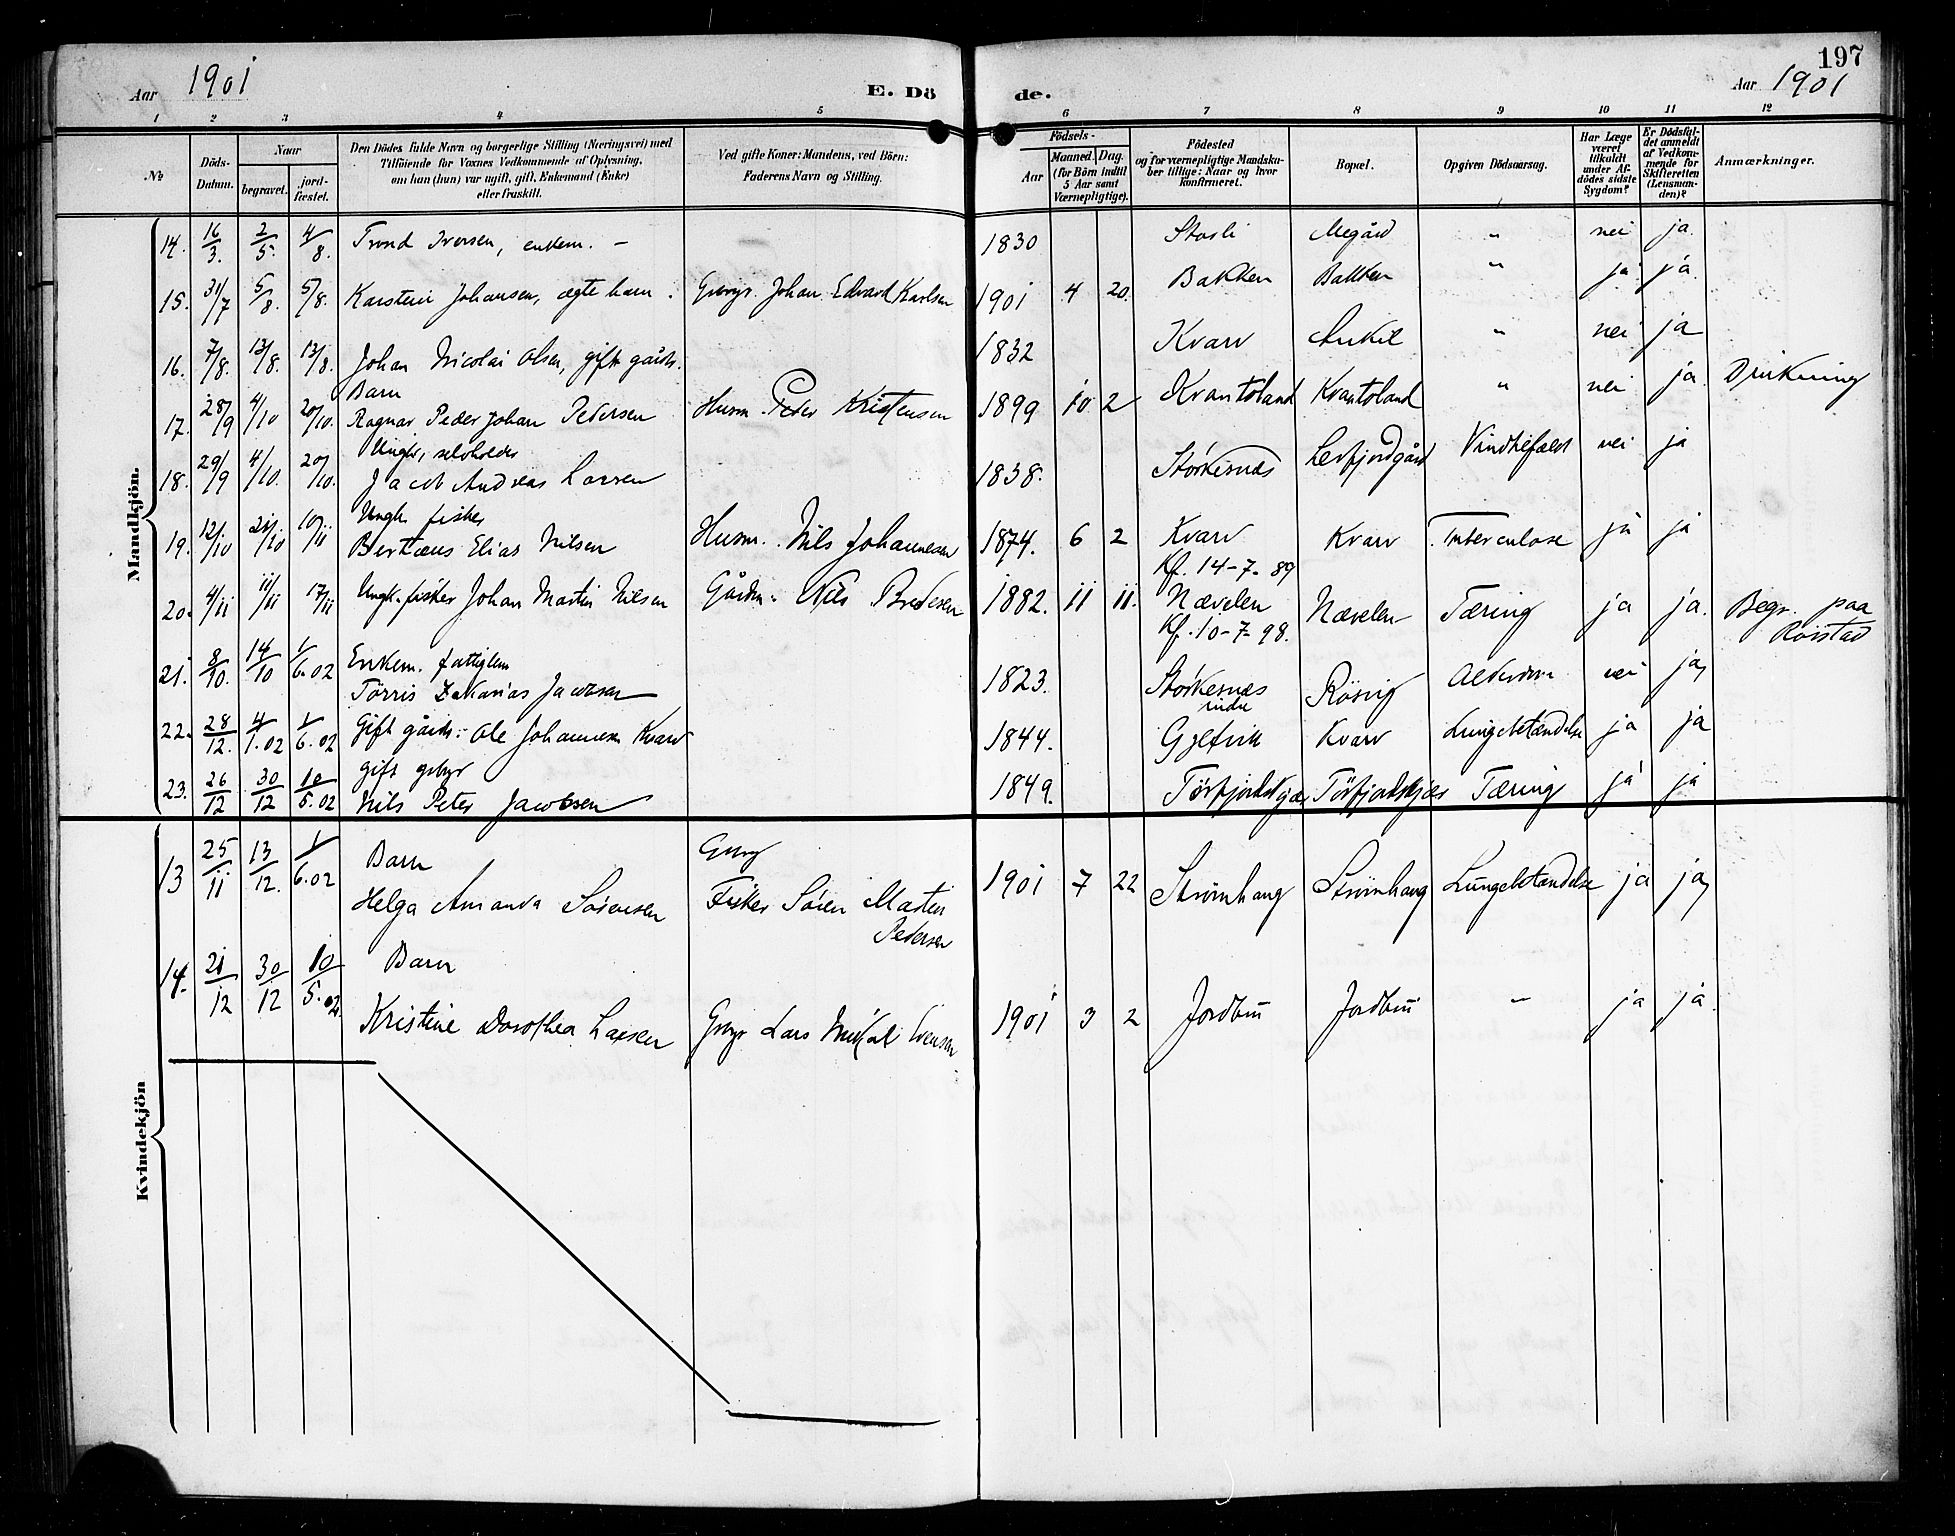 197
Aar 1901
E. Dö de.
Aar 1901
1 2 3 4 5 6 7 8 9 10 11 12
No
Döds-Datum.
Naar
begravet.
jord-fæstet.
Den Dödes fulde Navn og borgerlige Stilling (Næringsvei) med
Tilföiende for Voxnes Vedkommende af Oplysning,
om han (hun) var ugift, gift, Enkemand (Enke)
eller fraskilt.
Ved gifte Koner: Mandens, ved Börn:
Faderens Navn og Stilling.
Födsels-
Aar
Maaned. Dag.
(for Börn indtil
5 Aar samt
Værnepligtige).
Födested
og for værnepligtige Mandska-
ber tillige: Naar og hvor
konfirmeret.
Bopæl.
Opgiven Dödsaarsag.
Har Læge
været
tilkaldt
under Af-
dödes sidste
Sygdom?
Er Dödsfal-
det anmeldt
af Vedkom-
mende for
Skifteretten
(Lensman-
den)?
Anmærkninger.
Mandkjön.
14. 16/3. 2/5. 4/8. Trond Iversen, enkem. – – 1830 Stosli Megård " nei ja.
15. 31/7 5/8. 5/8. Karsten Johansen, ægte barn. Gbrgr. Johan Edvard Karlsen 1901 4 20. Bakken Bakken " ja ja.
16. 7/8. 13/8. 13/8. Johan Nicolai Olsen, gift gårds. 1832 Kvarv " nei ja
Barn
17. 28/9 4/10 20/10. Ragnar Peder Johan Pedersen Husm. Peder Kristensen 1899 10 2 Kvantoland Kvantoland " nei ja Drukning
Ungk.,
18. 29/9 4/10. 20/10. Jacob Andreas Larsen 1838. Storkesnæs Lerfjordgård nei ja
Ungk. fisker
19. 12/10 21/10 10/11 Bertæus Elias Nilsen Husm. Nils Johannesen 1874. 6 2 Kvarv Kvarv Tuberculose ja ja
Kf. 14-7-89
20. 4/11 11/11 17/11 Ungk. fisker Johan Martin Nilsen Gårdm. Nils Bredesen 1882. 11 11. Nævelen Nævelen Tæring ja ja. Begr. paa
Kf. 10-7-98. Röistad
Enkem. fattiglem
21. 8/10. 14/10 1/6.02 Törris Zakarias Jacobsen 1823. Storkesnæs Rösvig Alderdom nei ja
indre
22. 28/12. 4/1.02 1/6.02 Gift gårds. Ole Johannesen Kvarv 1844. Gjelvik Kvarv Lungebetændelse ja ja
gift grbgr
23. 26/12 30/12 10/5.02 Nils Peter Jacobsen 1849. Törfjordskjær Törfjordskjær Tæring ja ja
Kvindekjön
Barn Gbrg
13 25/11 13/12. 1/6.02 Helga Amanda Sörensen Fisker Sören Martin 1901 7 22 Strömhaug Strömhaug Lungebetændelse ja ja
Pedersen
Barn
14. 21/12 30/12 10/5.02 Kristine Dorothea Larsen Gbrgr Lars Mikal Evensen 1901 3 2 Jordbru Jordbru " ja ja.